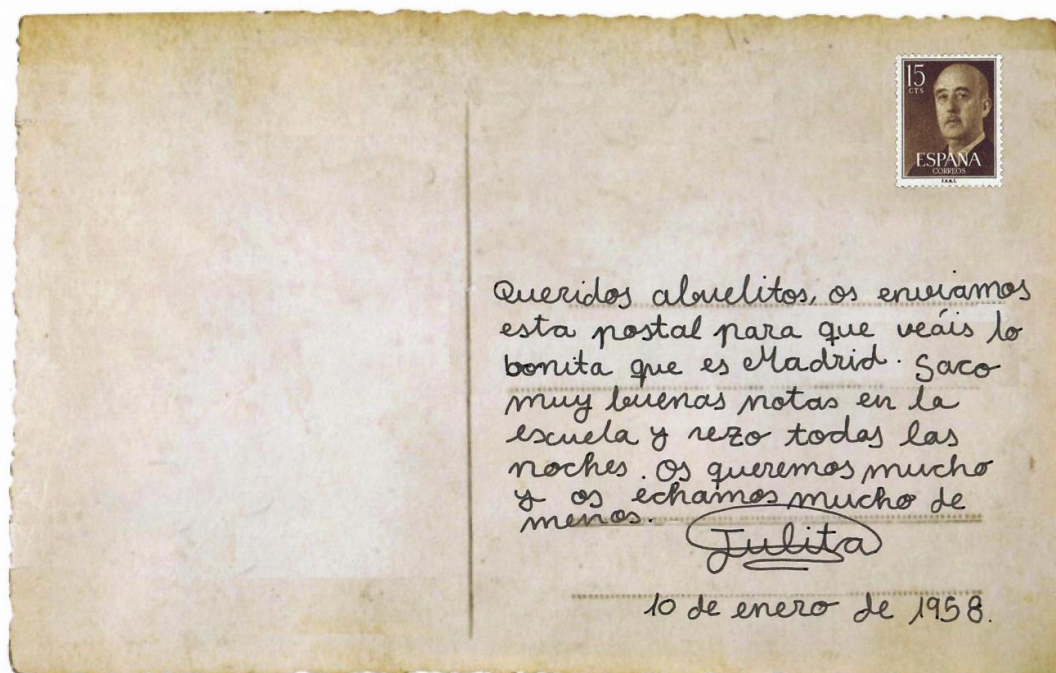 15
CTS
ESPAÑA
CORREOS
Queridos abuelitos, os enviamos
esta postal para que veáis lo
bonita que es Madrid. Saco
muy buenas notas en la
escuela y rezo todas las
noches. Os queremos mucho
y os echamos mucho de
menos.
Julita
10 de enero de 1958.